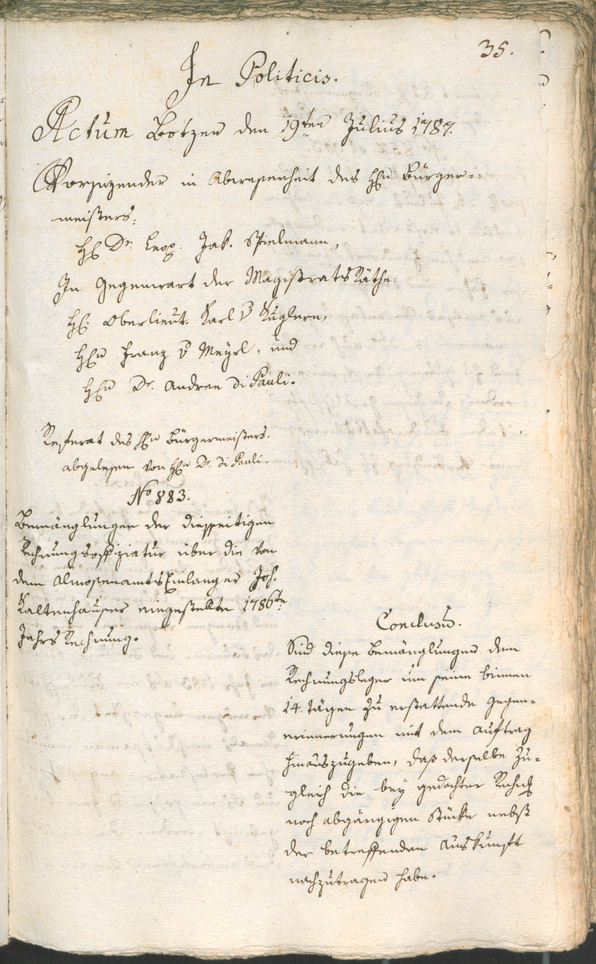 35.
In Politicis.
Actum Botzen den 19ten Julius 1787.
Vorsizender in Abwesenheit des Hrn Bürger-
meisters:
Hr Dr Leop. Jak. Spielmann,
In Gegenwart der Magistrats Räthe:
Hr Oberlieut. Karl v Kuglern,
Hrn Franz v Meyrl, und
Hrn Dr. Andree Di Pauli.
Referat des Hrn Bürgermeisters.
abgelesen von Hrn Dr. Di Pauli.
No 883.
Bemänglungen der diesseitigen
Rechnungsoffiziatur über die von
dem Almosenamts Einlanger Joh.
Kaltenhauser eingestellte 1786te
Jahrs Rechnung.
Conclusū.
Sind diese Bemänglungen dem
Rechnungsleger um seine binnen
14 tägen zu erstattende Gegen-
erinnerungen mit dem Auftrag
hinauszugeben, daß derselbe zu-
gleich die bey gedachter
noch abgängigen Stücke nebst
der betreffenden Auskunft
nachzutragen habe.